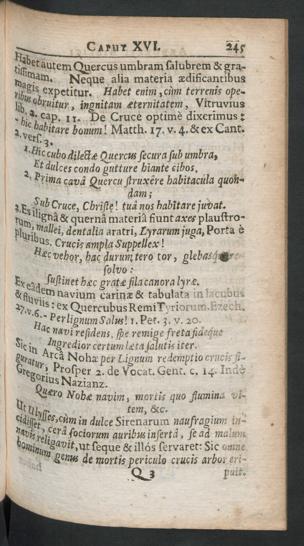 CAPUT XVI. 245
Habet autem Quercus umbram salubrem & gra-
tissimam. Neque alia materia ædificantibus
magis expetitur. Habet enim, cùm terrenis ope-
ribus obruitur, ingnitam æternitatem, Vitruvius
lib. 2. cap. 11. De Cruce optimè dixerimus:
- hîc habitare bonum! Matth. 17. v. 4. & ex Cant.
2. vers. 3.
1. Hic cubo dilectæ Quercus secura sub umbra,
Et dulces condo gutture hiante cibos.
2. Prima cavâ Quercu struxére habitacula quon-
dam;
Sub Cruce, Christe! tuâ nos habitare juvat.
3. Es ilignâ & quernâ materiâ fiunt axes plaustro-
rum, mallei, dentalia aratri, Lyrarum juga, Porta è
pluribus. Crucis ampla Suppellex!
Hæc vehor, hac durum tero tor, glebasque re-
solvo:
sustinet hæc gratæ fila canora lyræ.
Ex eâdem navium carinæ & tabulata in lacubus
& fluviis: ex Quercubus Remi Tyriorum. Ezech.
27. v. 6. - Per lignum Salus! 1. Pet. 3. v. 20.
Hac navi residens, spe remige freta fideque
Ingredior certum læta salutis iter.
Sic in Arcâ Nohæ per Lignum redemptio crucis fi-
guratur, Prosper 2. de Vocat. Gent. c. 14. Indè
Gregorius Nazianz.
Quæro Nohæ navim, mortis quo flumina vi-
tem, &c.
Ut Ulysses, cùm in dulce Sirenarum naufragium in-
cidisset, cerâ sociorum auribus insertâ, se ad malum
navis religavit, ut seque & illos servaret: Sic omne
hominum genus de mortis periculo crucis arbor eri-
Q 3 puit.